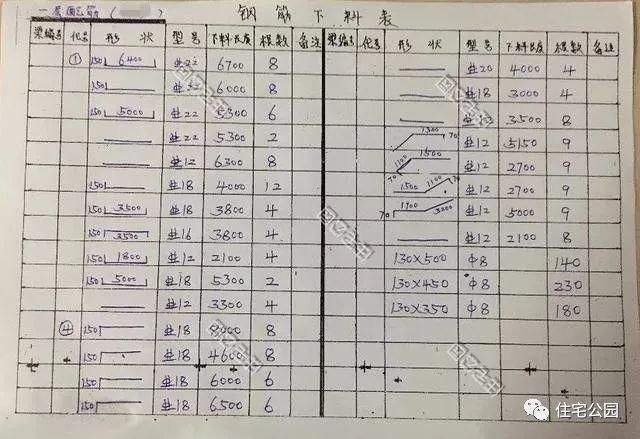 一层配筋
钢筋下料表
梁编号 代号 形状 型号 下料长度 根数 备注 梁编号 代号 形状 型号 下料长度 根数 备注
① 150 6400 22 6700 8
150 22 6000 8
150 5000 22 5300 6
22 5300 2
12 6300 8
150 18 4000 12
150 3500 18 3800 4
150 3500 16 3800 4
150 1800 12 2100 4
150 5000 18 5300 2
12 3300 4
④ 150 18 8000 8
150 18 4600 8
150 18 6000 6
150 18 6500 6
20 4000 4
18 3000 4
3500 8
1300 70 12 5150 9
70 1100 1500 12 2700 9
1500 1100 70 12 2700 9
70 1700 3200 12 5000 9
12 2100 8
130×500 Φ8 140
130×450 Φ8 230
130×350 Φ8 180
住宅公园